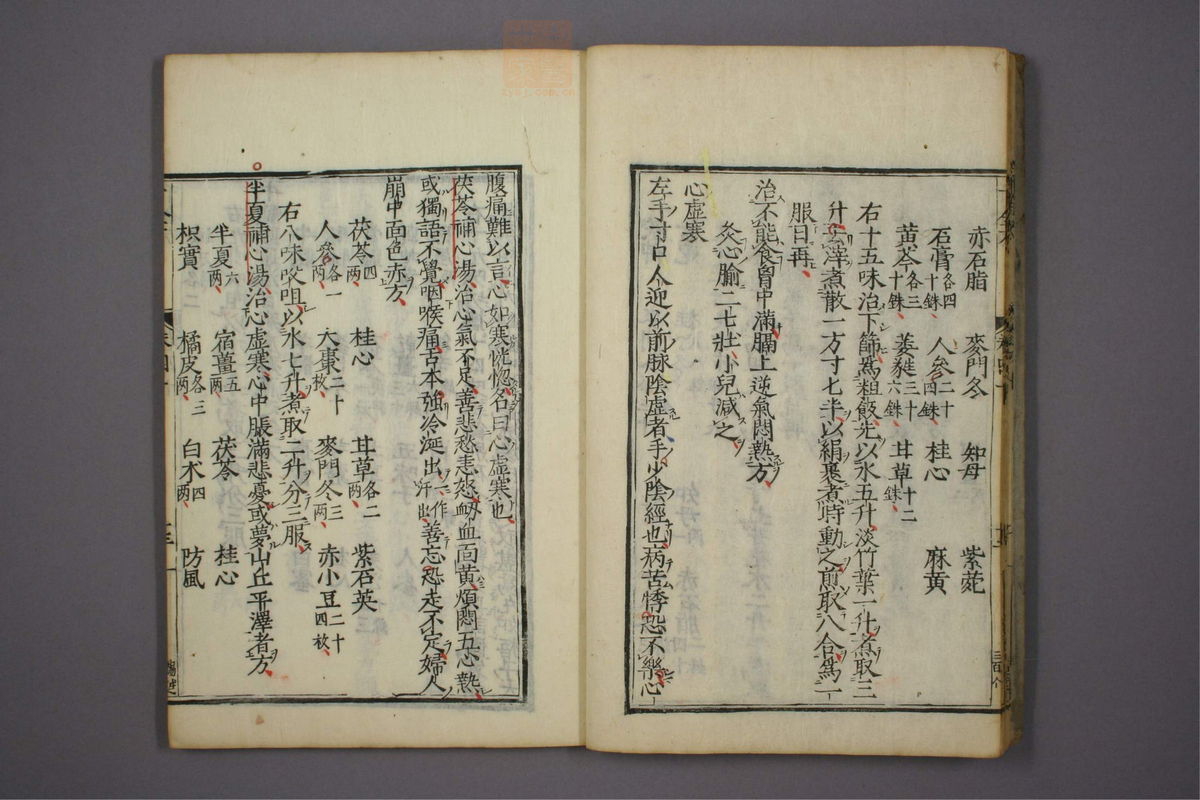 赤石脂 麥門冬 知母 紫菀
石膏各四十銖 人參二十四銖 桂心 麻黃
黃芩各三十銖 葳蕤三十六銖 甘草十二銖
右十五味治下篩爲粗散先以水五升淡竹葉一升煮取三
升去滓煮散一方寸匕半以絹裹煮時動之煎取八合爲一
服日再
治不能食胷中滿膈上逆氣悶熱方
灸心腧二七壯小兒減之
心虛寒
左手寸口人迎以前脉陰虛者手少陰經也病苦悸恐不樂心
腹痛難以言心如寒恍惚名曰心虛寒也
茯苓補心湯治心氣不足善悲愁恚怒衂血面黃煩悶五心熱
或獨語不覺咽喉痛舌本強冷涎出一作汗出善忘恐走不定婦人
崩中面色赤方
茯苓四兩 桂心 甘草各二兩 紫石英
人參各一兩 大棗二十枚 麥門冬三兩 赤小豆二十四枚
右八味㕮咀以水七升煮取二升分三服
半夏補心湯治心虛寒心中脹滿悲憂或夢山丘平澤者方
半夏六兩 宿薑五兩 茯苓 桂心
枳實 橘皮各三兩 白术四兩 防風